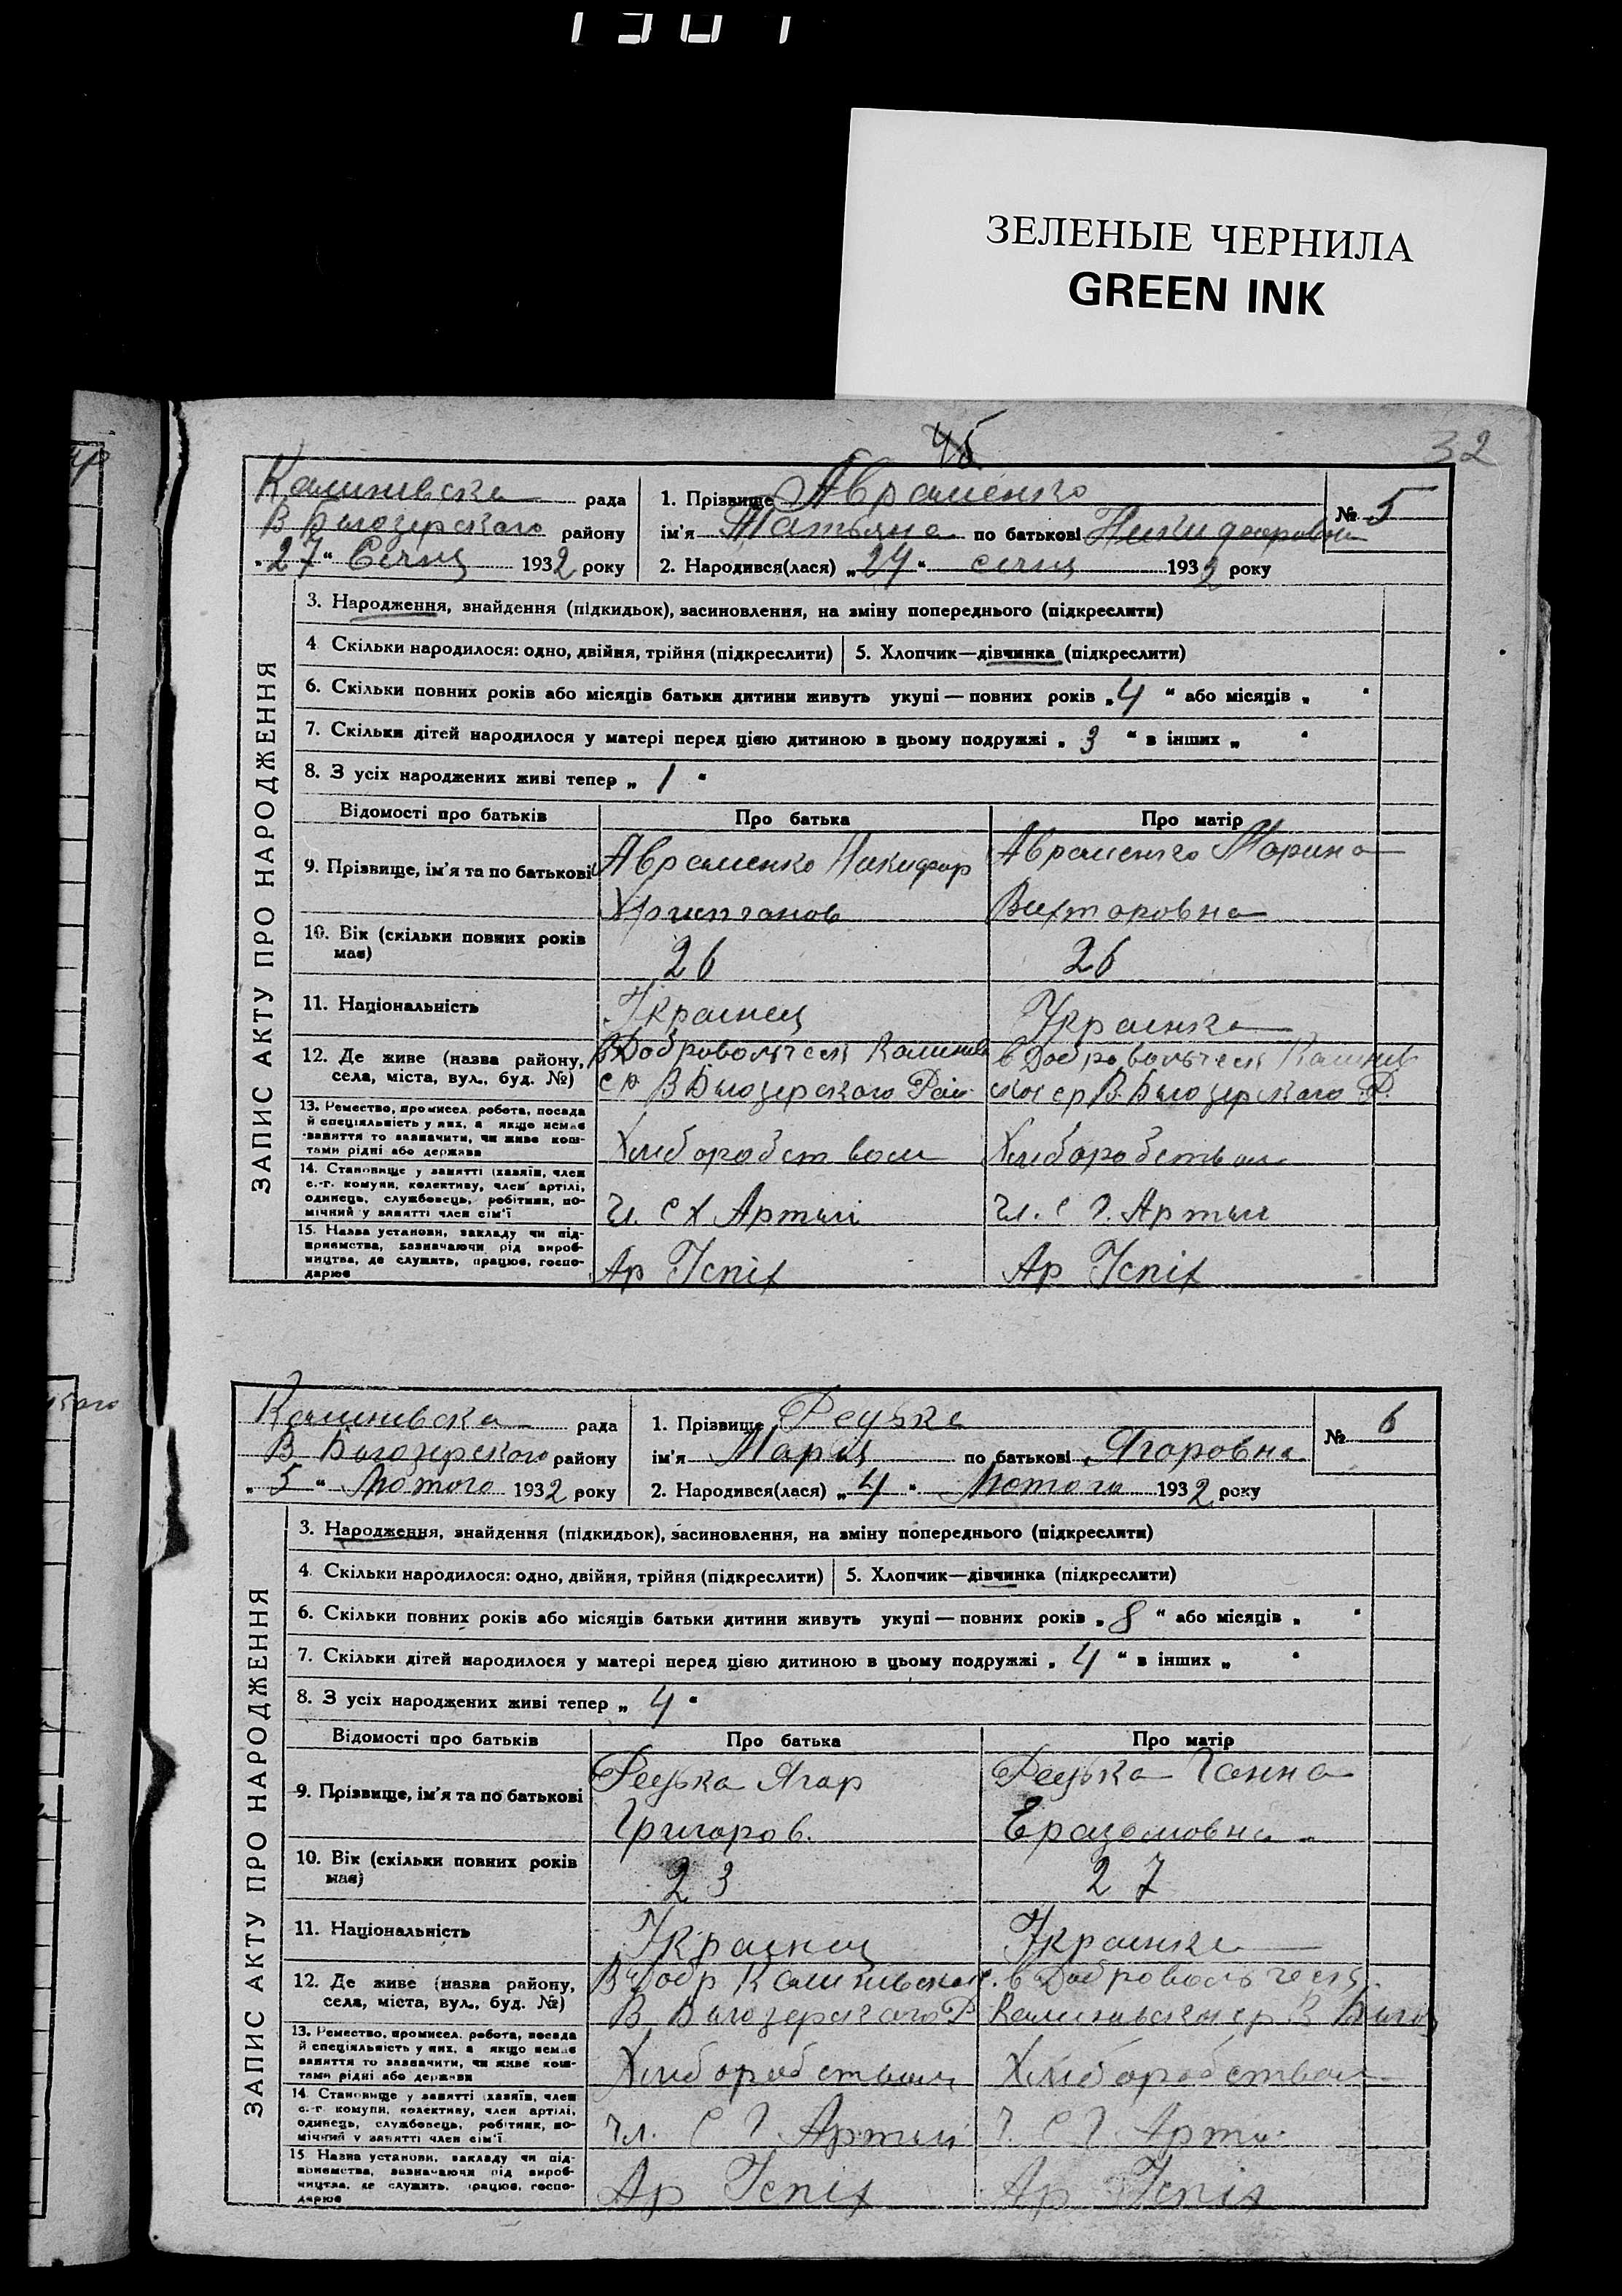 ЗЕЛЕНЫЕ ЧЕРНИЛА
GREEN INK
45
32
Калинивска рада
В Билозерского району
„27“ Січц 1932 року
1. Прізвище Авраменко
ім'я Татьяна по батькові Никифоровна
2. Народився(лася) „24“ січц 1932 року
№ 5
ЗАПИС АКТУ ПРО НАРОДЖЕННЯ
3. Народження, знайдення (підкидьок), засиновлення, на зміну попереднього (підкреслити)
4. Скільки народилося: одно, двійня, трійня (підкреслити) 5. Хлопчик—дівчинка (підкреслити)
6. Скільки повних років або місяців батьки дитини живуть укупі — повних років „4“ або місяців „ “
7. Скільки дітей народилося у матері перед цією дитиною в цьому подружжі „3“ в інших „ “
8. З усіх народжених живі тепер „1“
Відомості про батьків Про батька Про матір
9. Прізвище, ім'я та по батькові
Авраменко Никифор
Авраменко Марина
Вихторовна
10. Вік (скільки повних років має)
26 26
11. Національність
Украинец Украинка
12. Де живе (назва району, села, міста, вул., буд. №)
В Билозерского Рай
ср В. Билозерского Р.
13. Ремество, промисел, робота, посада
й спеціяльність у них, а якщо немає
заняття то зазначити, чи живе кош-
тами рідні або держави
Хлиборобством Хлиборобством
14. Становище у занятті (хазяїн, член
с.-г. комуни, колективу, член артілі,
одинець, службовець, робітник, по-
мічний у занятті член сім'ї
Чл. С Х Артили Чл. С Г. Артили
15. Назва установи, закладу чи під-
приємства, зазначаючи рід вироб-
ництва, де служить, працює, госпо-
дарює
Ар Успіх Ар Успіх
Калинивска рада
В Билозерского району
„5“ Лютого 1932 року
1. Прізвище Рецька
ім'я Мариц по батькові Ягоровна
2. Народився(лася) „4“ Лютого 1932 року
№ 6
ЗАПИС АКТУ ПРО НАРОДЖЕННЯ
3. Народження, знайдення (підкидьок), засиновлення, на зміну попереднього (підкреслити)
4. Скільки народилося: одно, двійня, трійня (підкреслити) 5. Хлопчик—дівчинка (підкреслити)
6. Скільки повних років або місяців батьки дитини живуть укупі — повних років „8“ або місяців „ “
7. Скільки дітей народилося у матері перед цією дитиною в цьому подружжі „4“ в інших „ “
8. З усіх народжених живі тепер „4“
Відомості про батьків Про батька Про матір
9. Прізвище, ім'я та по батькові
Рецька Ягор
Григоров.
Рецька Ганна
10. Вік (скільки повних років має)
23 27
11. Національність
Украинец Украинка
12. Де живе (назва району, села, міста, вул., буд. №)
В Билозерского Р
13. Ремество, промисел, робота, посада
й спеціяльність у них, а якщо немає
заняття то зазначити, чи живе кош-
тами рідні або держави
Хлиборобством Хлиборобством
14. Становище у занятті (хазяїн, член
с.-г. комуни, колективу, член артілі,
одинець, службовець, робітник, по-
мічний у занятті член сім'ї
Чл. С Г Артили Ч. С Г Арти.
15. Назва установи, закладу чи під-
приємства, зазначаючи рід вироб-
ництва, де служить, працює, госпо-
дарює
Ар Успіх Ар Успіх